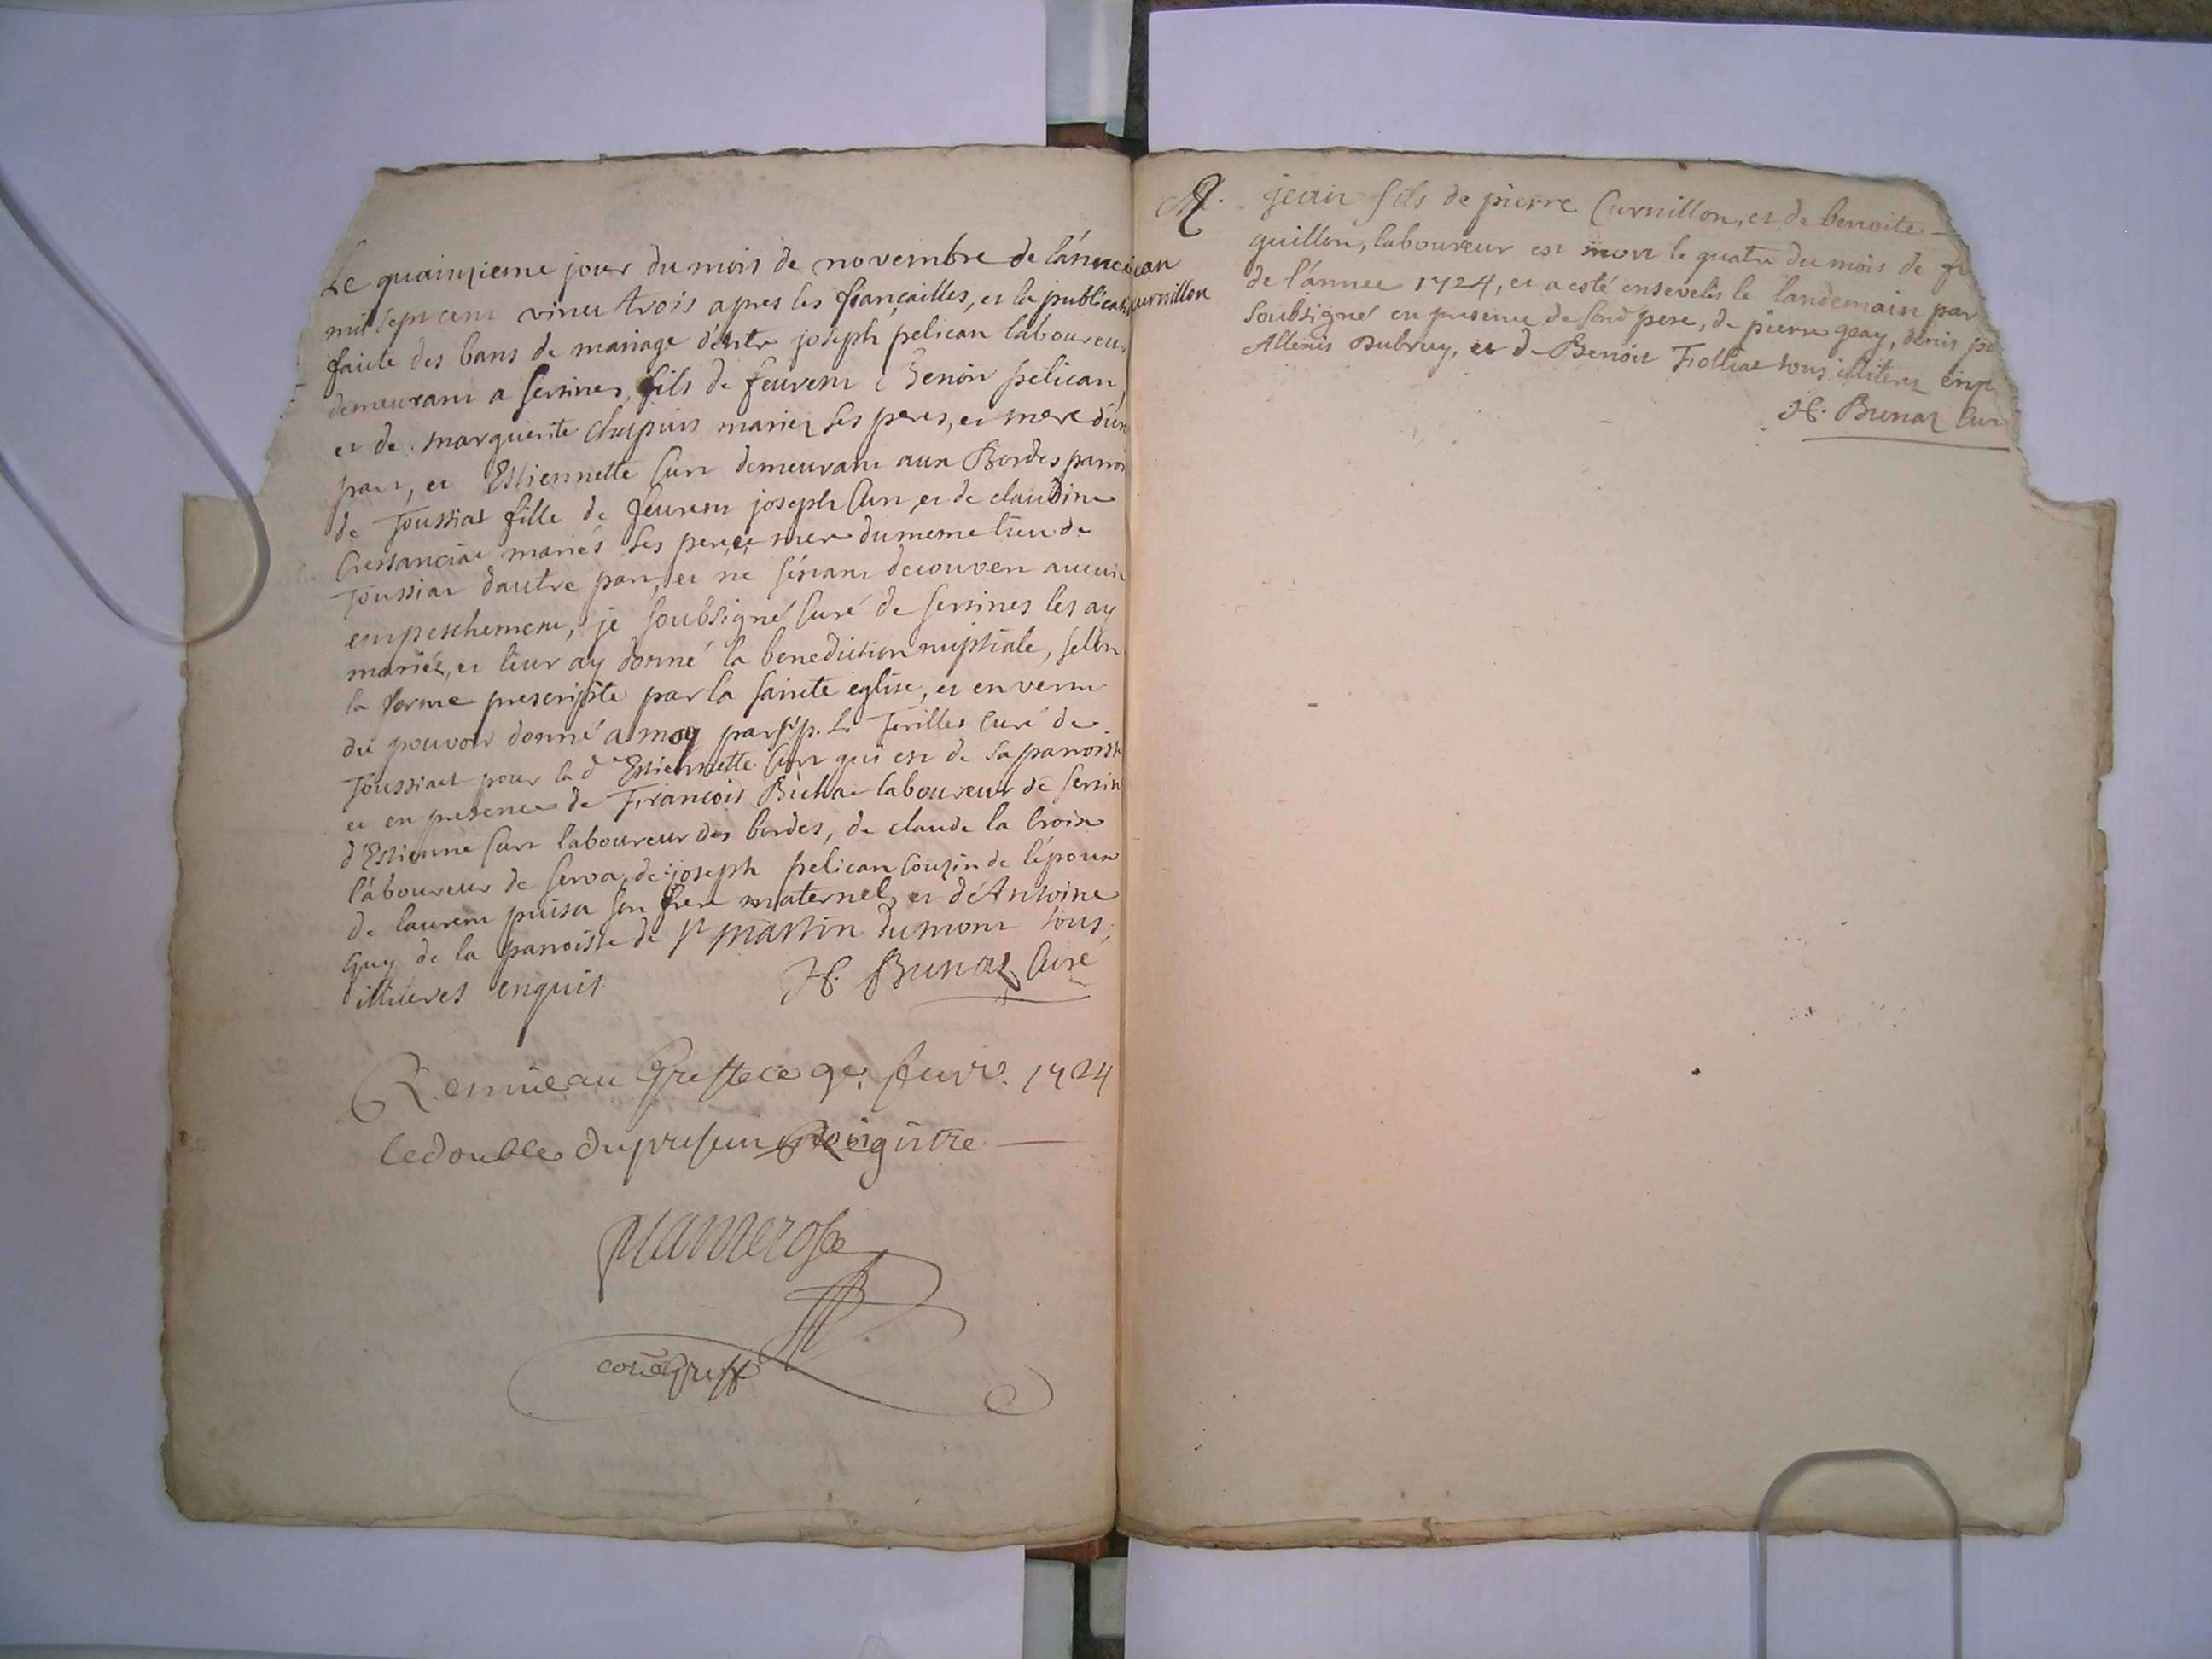 Le quainzieme jour du mois de novembre de l'année
mil sept cent vint trois apres les fiançailles, et la publicati
faite des bans de mariage d'entre joseph pelican laboureur
demeurant a sersines, fils de feurent Benoit pelican,
et de marguerite Chapuis mariez ses peres, et mere d'un
part, et Estiennette Curt demeurant aux Bordes parroi
de Joussiat fille de feurent joseph Curt et de claudine
mariés ses pere, et mere du meme lieu de
Joussiat d'autre part, et ne s'etant decouvert aucun
empeschement, je soubsigné Curé de sersines les ay
mariés, et leur ay donné la benediction nuptiale, selon
la forme prescripte par la sainte eglise, et en vertu
du pouvoir donné a moy par Curé de
Joussiat pour la d Estiennette Curt qui est de sa parroisse
et en presence de François laboureur de sersin
d'Estienne Curt laboureur des bordes, de claude la Croix
laboureur de serva, de joseph pelican Couzin de l'époux
de laurent puisa son frere maternel, et d'Antoine
Guy de la parroisse de st martin dumont tous
illiteres enquis H. Bunaz Curé
Remüe au Greffe ce 9e. feuvr. 1724
le double du present Registre
Greff
M. jean fils de pierre Curnillon, et de benoite
jean
Curnillon
guillon, laboureur est mort le quatre du mois de
de l'année 1724, et a esté ensevelis le landemain par
soubsigné en presence de sond pere, de pierre geay, denis
Allexis Dubruy, et de Benoit Folliat tous illiters enq
H. Bunaz Cur